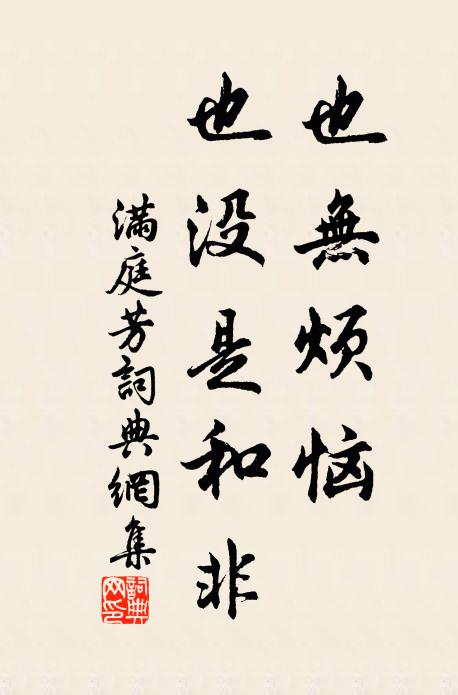 也無烦恼
也没是和非
滿庭芳詞典網集
詞典网印